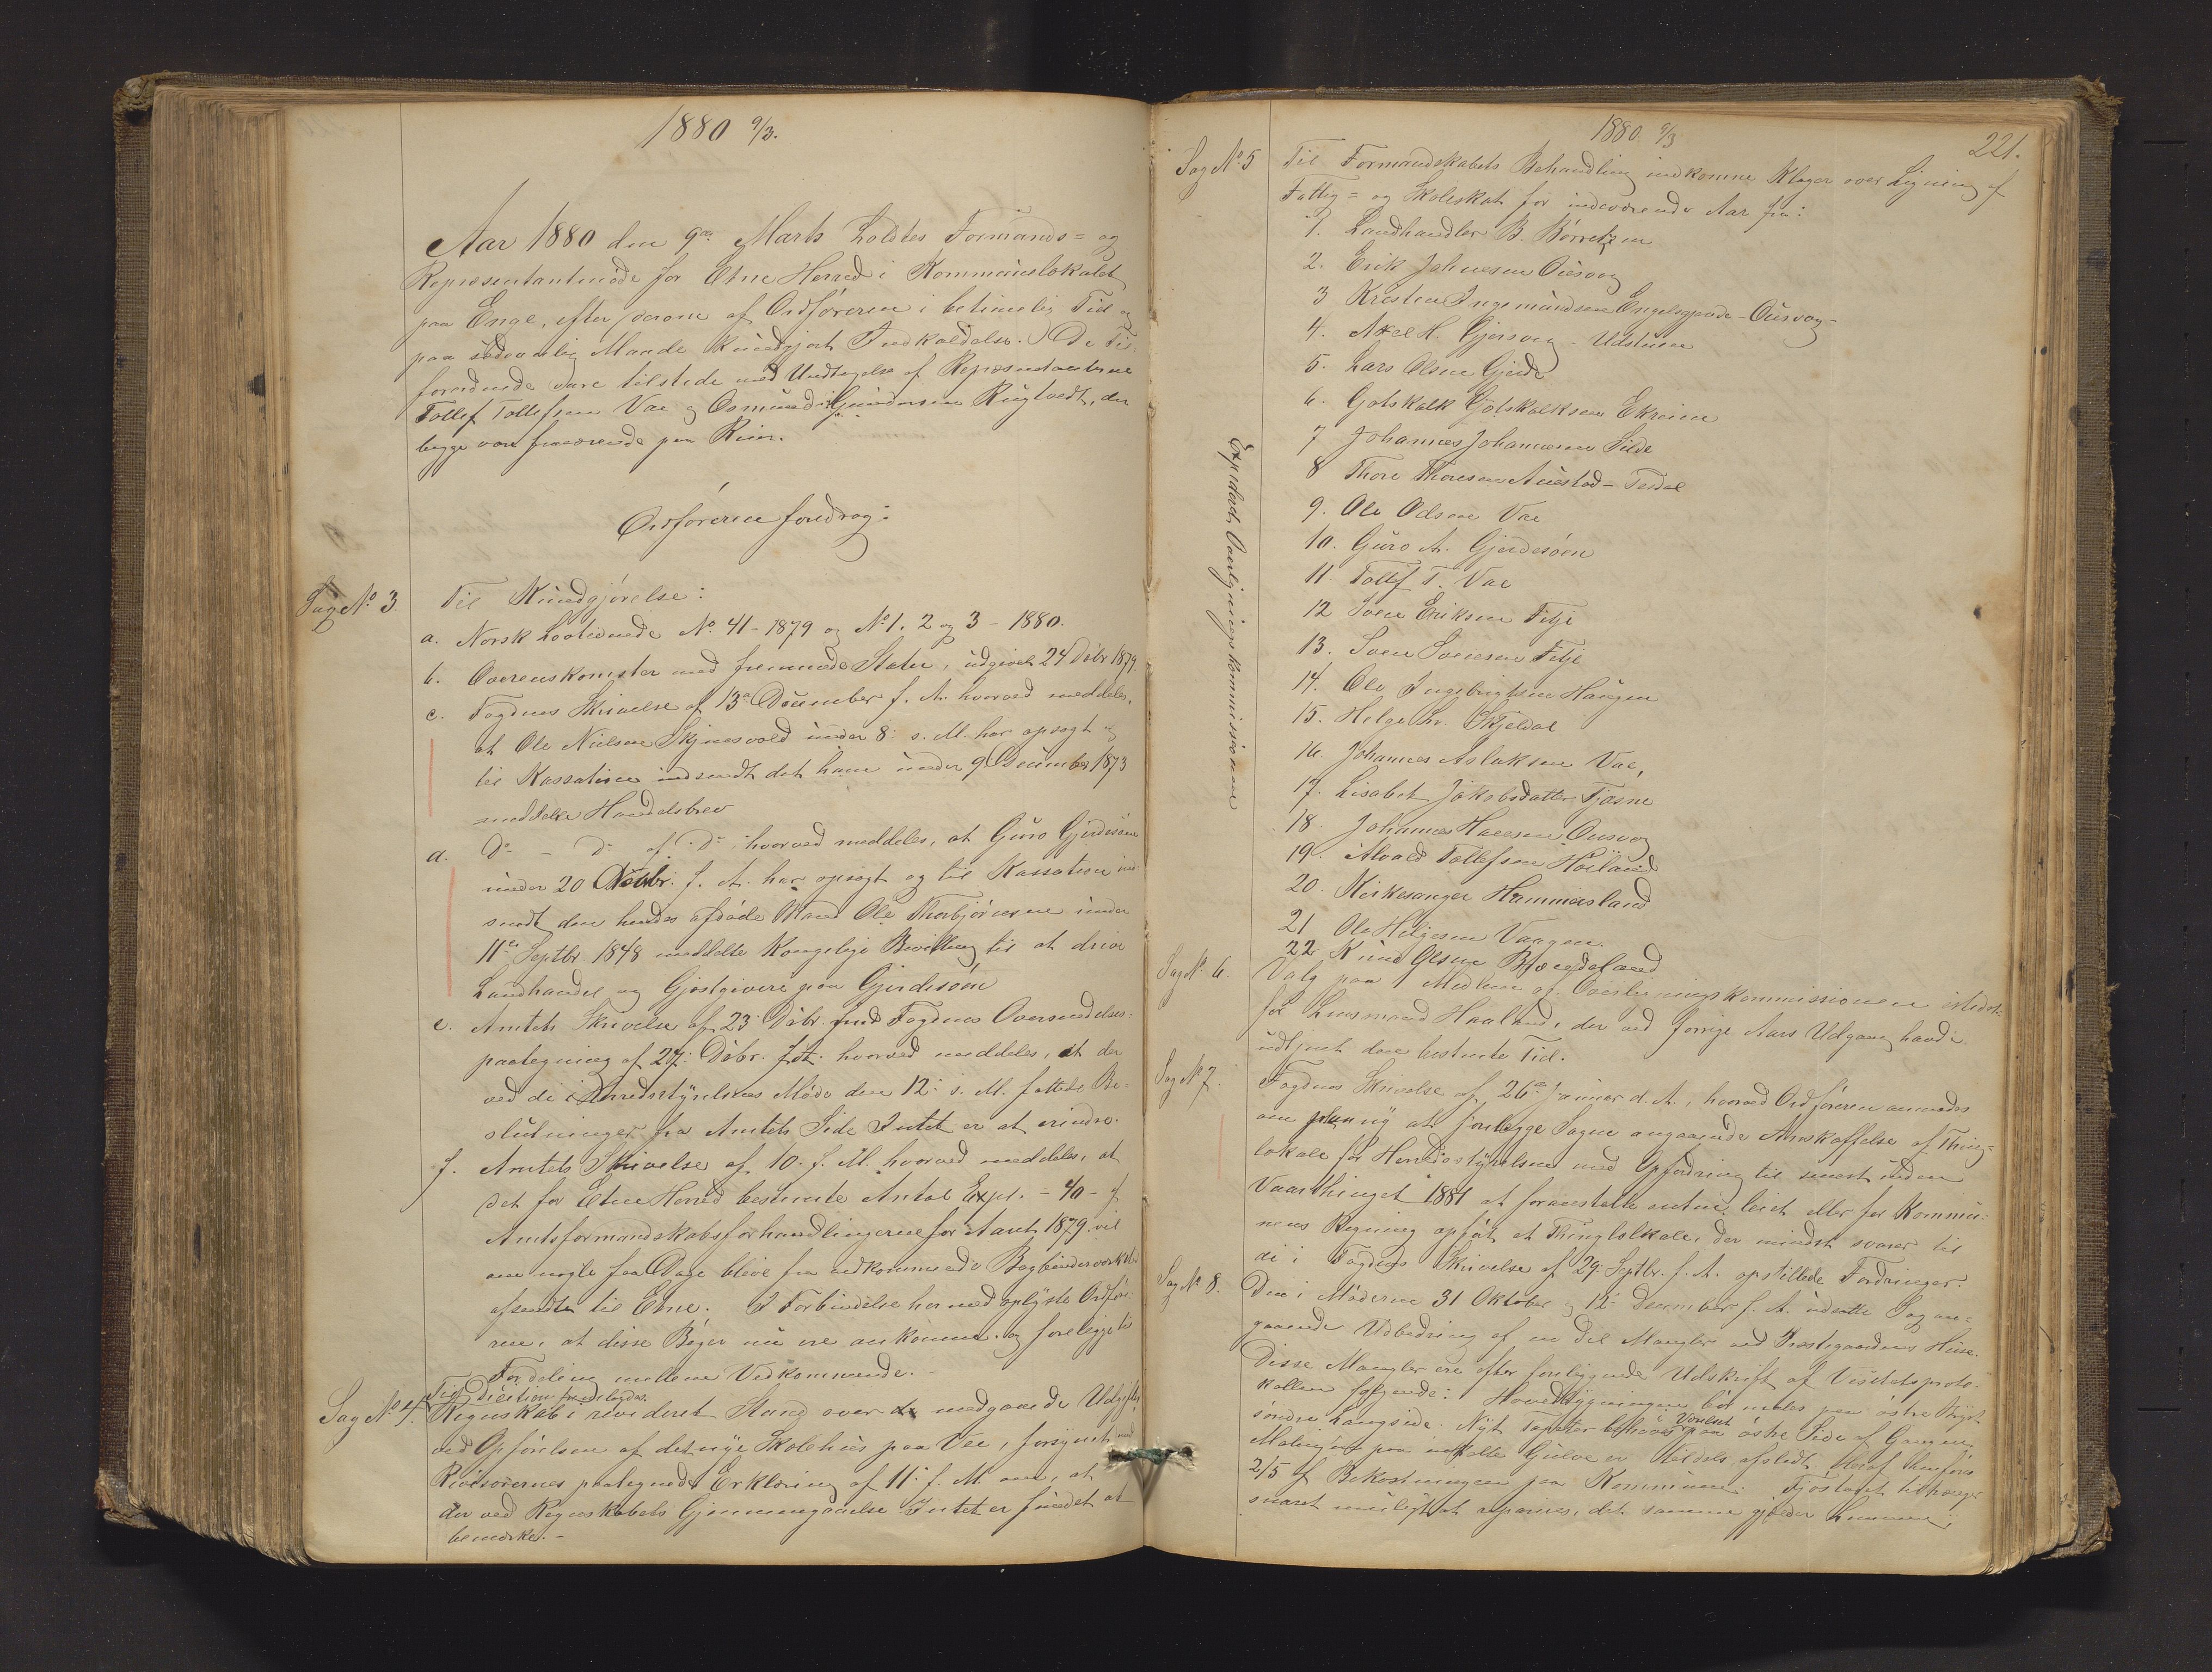 1880 9/3.
Aar 1880 den 9de Marts holdtes Formands= og
Repræsentantmøde for Etne Herred i Kommunelokalet
paa Enge, efter foran af Ordføreren i betimelig Tid og
paa sædvanlig Maade kundgjort Indkaldelse. De Til-
forordnede vare tilstede med Undtagelse af Repræsentanterne
Tollef Tollefsen Vae og Osmund Gundersen Rugtvedt, der
begge vare fraværende paa Reise.
Ordføreren foredrog:
Sag No 3. Til Kundgjørelse:
a. Norsk Lovtidende No 41 - 1879 og No 1. 2 og 3 - 1880.
b. Overenskomster med fremmede Stater, udgivet 24 Dcbr 1879.
c. Fogdens Skrivelse af 13de December f. A. hvorved meddeles,
at Ole Nielsen Skjnesvold under 8: s. M. har opsagt og
til Kassation indsendt det ham under 9 December 1873
meddelte Handelsbrev
d. Do - Do af Do, hvorved meddeles, at Guro Gjerdesøen
under 20 Novbr. f. A. har opsagt og til Kassation ind
sendt den hendes afdøde Mand Ole Thorbjørnsen under
11te Septbr 1848 meddelte Kongelige Bevilling til at drive
Landhandel og Gjæstgiveri paa Gjerdesøen
e. Amtets Skrivelse af 23: Dcbr. med Fogdens Oversendelses-
paategning af 27: Dcbr. f. A. hvorved meddeles, at der
ved de i Herredsstyrelsens Møde den 12: s. M. fattede Be-
slutninger fra Amtets Side Intet er at erindre.
f. Amtets Skrivelse af 10. f. M. hvorved meddeles, at
det for Etne Herred bestemte Antal Expl. - 40 - af
Amtsformandskabsforhandlingerne for Aaret 1879 vil
om nogle faa Dage blive fra vedkommende Bogbinderværksted
afsendt til Etne. I Forbindelse hermed oplyste Ordføre-
ren, at disse Bøger nu ere ankomne og foreligge til
Fordeling mellem Vedkommende.
Sag No 4. Til Decition fremlagdes
Regnskab i revideret Stand over de medgaaede Udgifter
ved Opførelsen af det nye Skolehus paa Vee, forsynet med
Revisorernes paategnede Erklæring af 11: f. M. om, at
der ved Regnskabets Gjennemgaaelse Intet er fundet at
bemærke. -
1880. 9/3
221.
Sag No 5 Til Formandskabets Behandling indkomne Klager over Ligning af
Fattig= og Skoleskat for indeværende Aar fra:
1. Landhandler B. Børretzen
2. Erik Johnesen Ousvog
3 Kresten Ingemundsen Engelsgjerde - Ousvog -
4. Axel H. Gjersvig - Udstuen
5. Lars Olsen Gjerde
6. Gotskalk Gotskalksen Ekreim
7 Johannes Johannesen Silde
8 Thore Thoresen Auestad - Tesdal
9. Ole Olsen Vae
10. Guro A. Gjerdesøen
11. Tollif T. Vae
12 Sven Eriksen Fitje
13. Sven Svensen Fitje
14. Ole Ingebrigtsen Haugen
15. Helge Lr. Skjeldal
16. Johannes Aslaksen Vae,
17. Lisabet Jakobsdatter Tjøsne
18. Johannes Hansen Ousvog
19. Alvald Tollefsen Høiland
20. Kirkesanger Hammersland
21 Ole Helgesen Vaagen.
22 Knud Olsen Brændeland
Expederet, Overligningskommissionen
Sag No 6. Valg paa 1 Medlem af Overligningskommissionen istedet-
for Lensmand Haaland, der ved forrige Aars Udgang havde
udtjent den bestemte Tid.
Sag No 7. Fogdens Skrivelse af 26de Januar d. A., hvorved Ordføreren anmodes
om paany at forelægge Sagen angaaende Anskaffelse af Thing=
lokale for Herredsstyrelsen med Opfordring til senest inden
Vaarthinget 1881 at foranstalte enten leiet eller for Kommu-
nens Regning opført et Thinglokale, der mindst svarer til
de i Fogdens Skrivelse af 29: Septbr. f. A. opstillede Fordringer.
Sag No 8. Den i Møderne 31 Oktober og 12 December f. A. udsatte Sag an=
gaaende Udbedring af en Del Mangler ved Præstegaardens Huse.
Disse Mangler ere efter foreliggende Udskrift af Visitatsproto-
kollen følgende: Hovedbygningen bør males paa østre
søndre Langside. Nyt Tapetser behøver Værelset paa østre Side af Gangen.
Malingen paa malte Gulve er tildels afslidt. Heraf
2/5 af Bekostningen paa Kommunen. Fjøstaget
snarest muligt at repareres, det samme gjælder